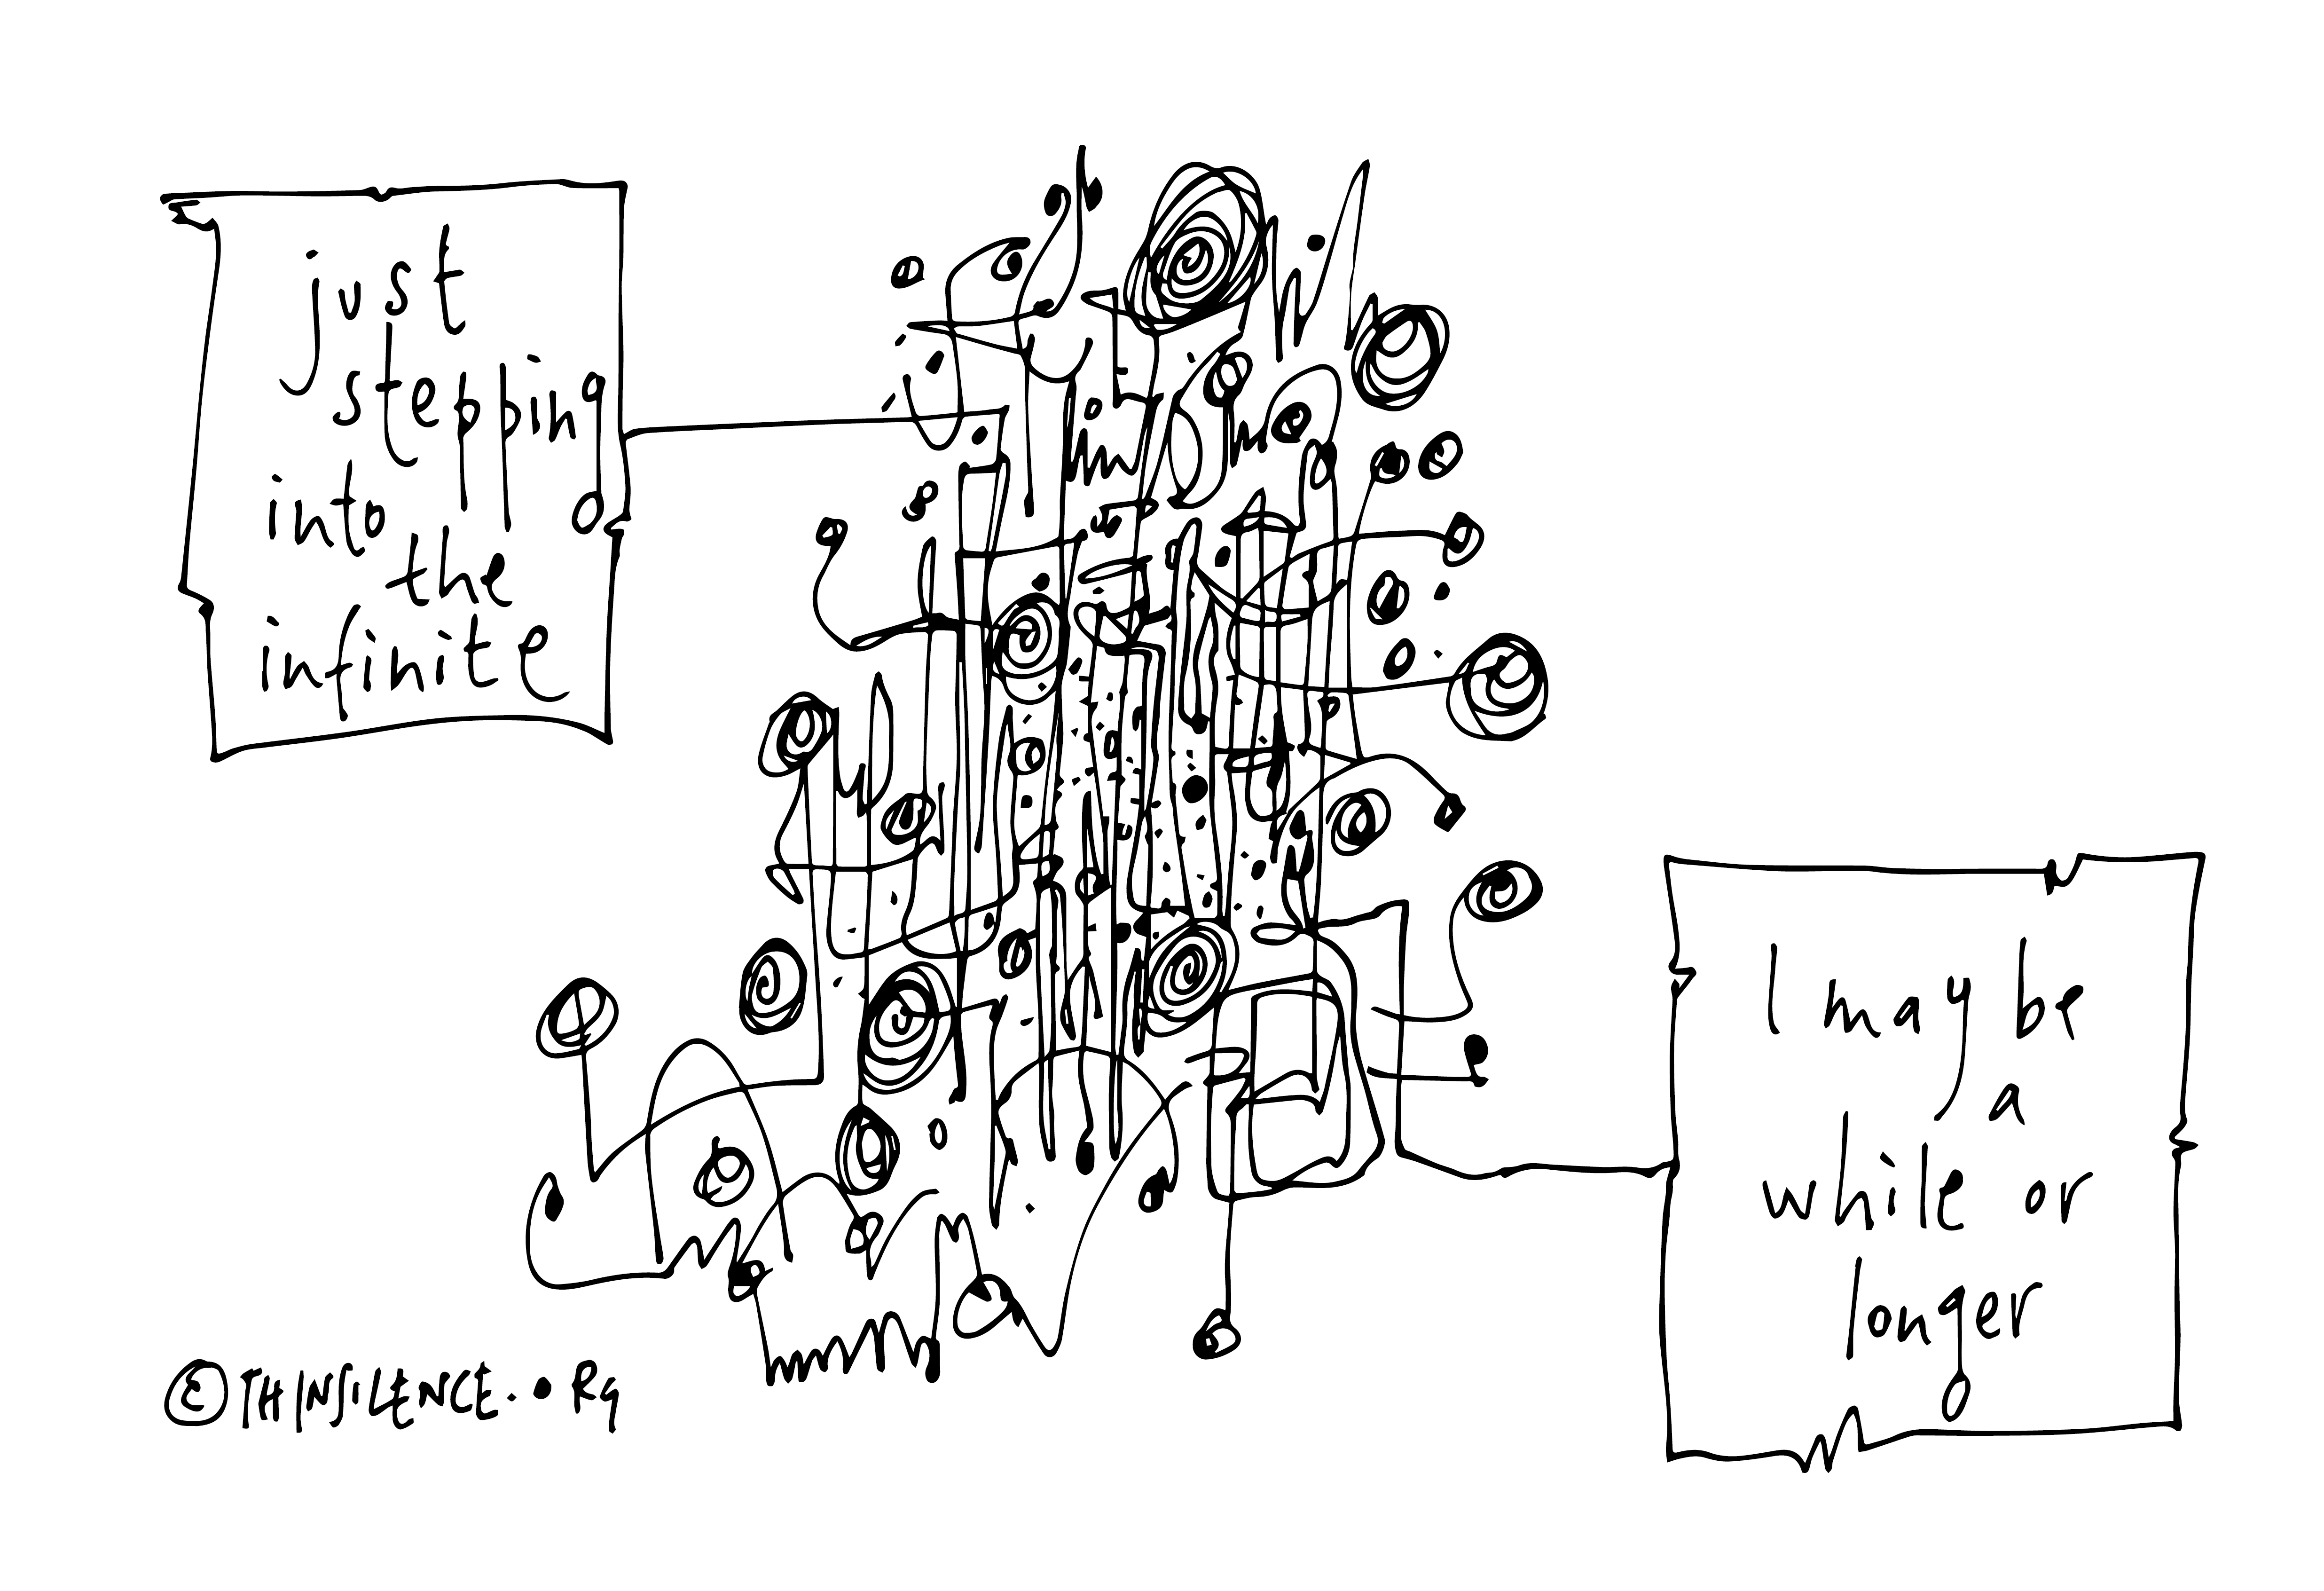 just
stepping
into
the
infinite
I may be
a
while or
longer